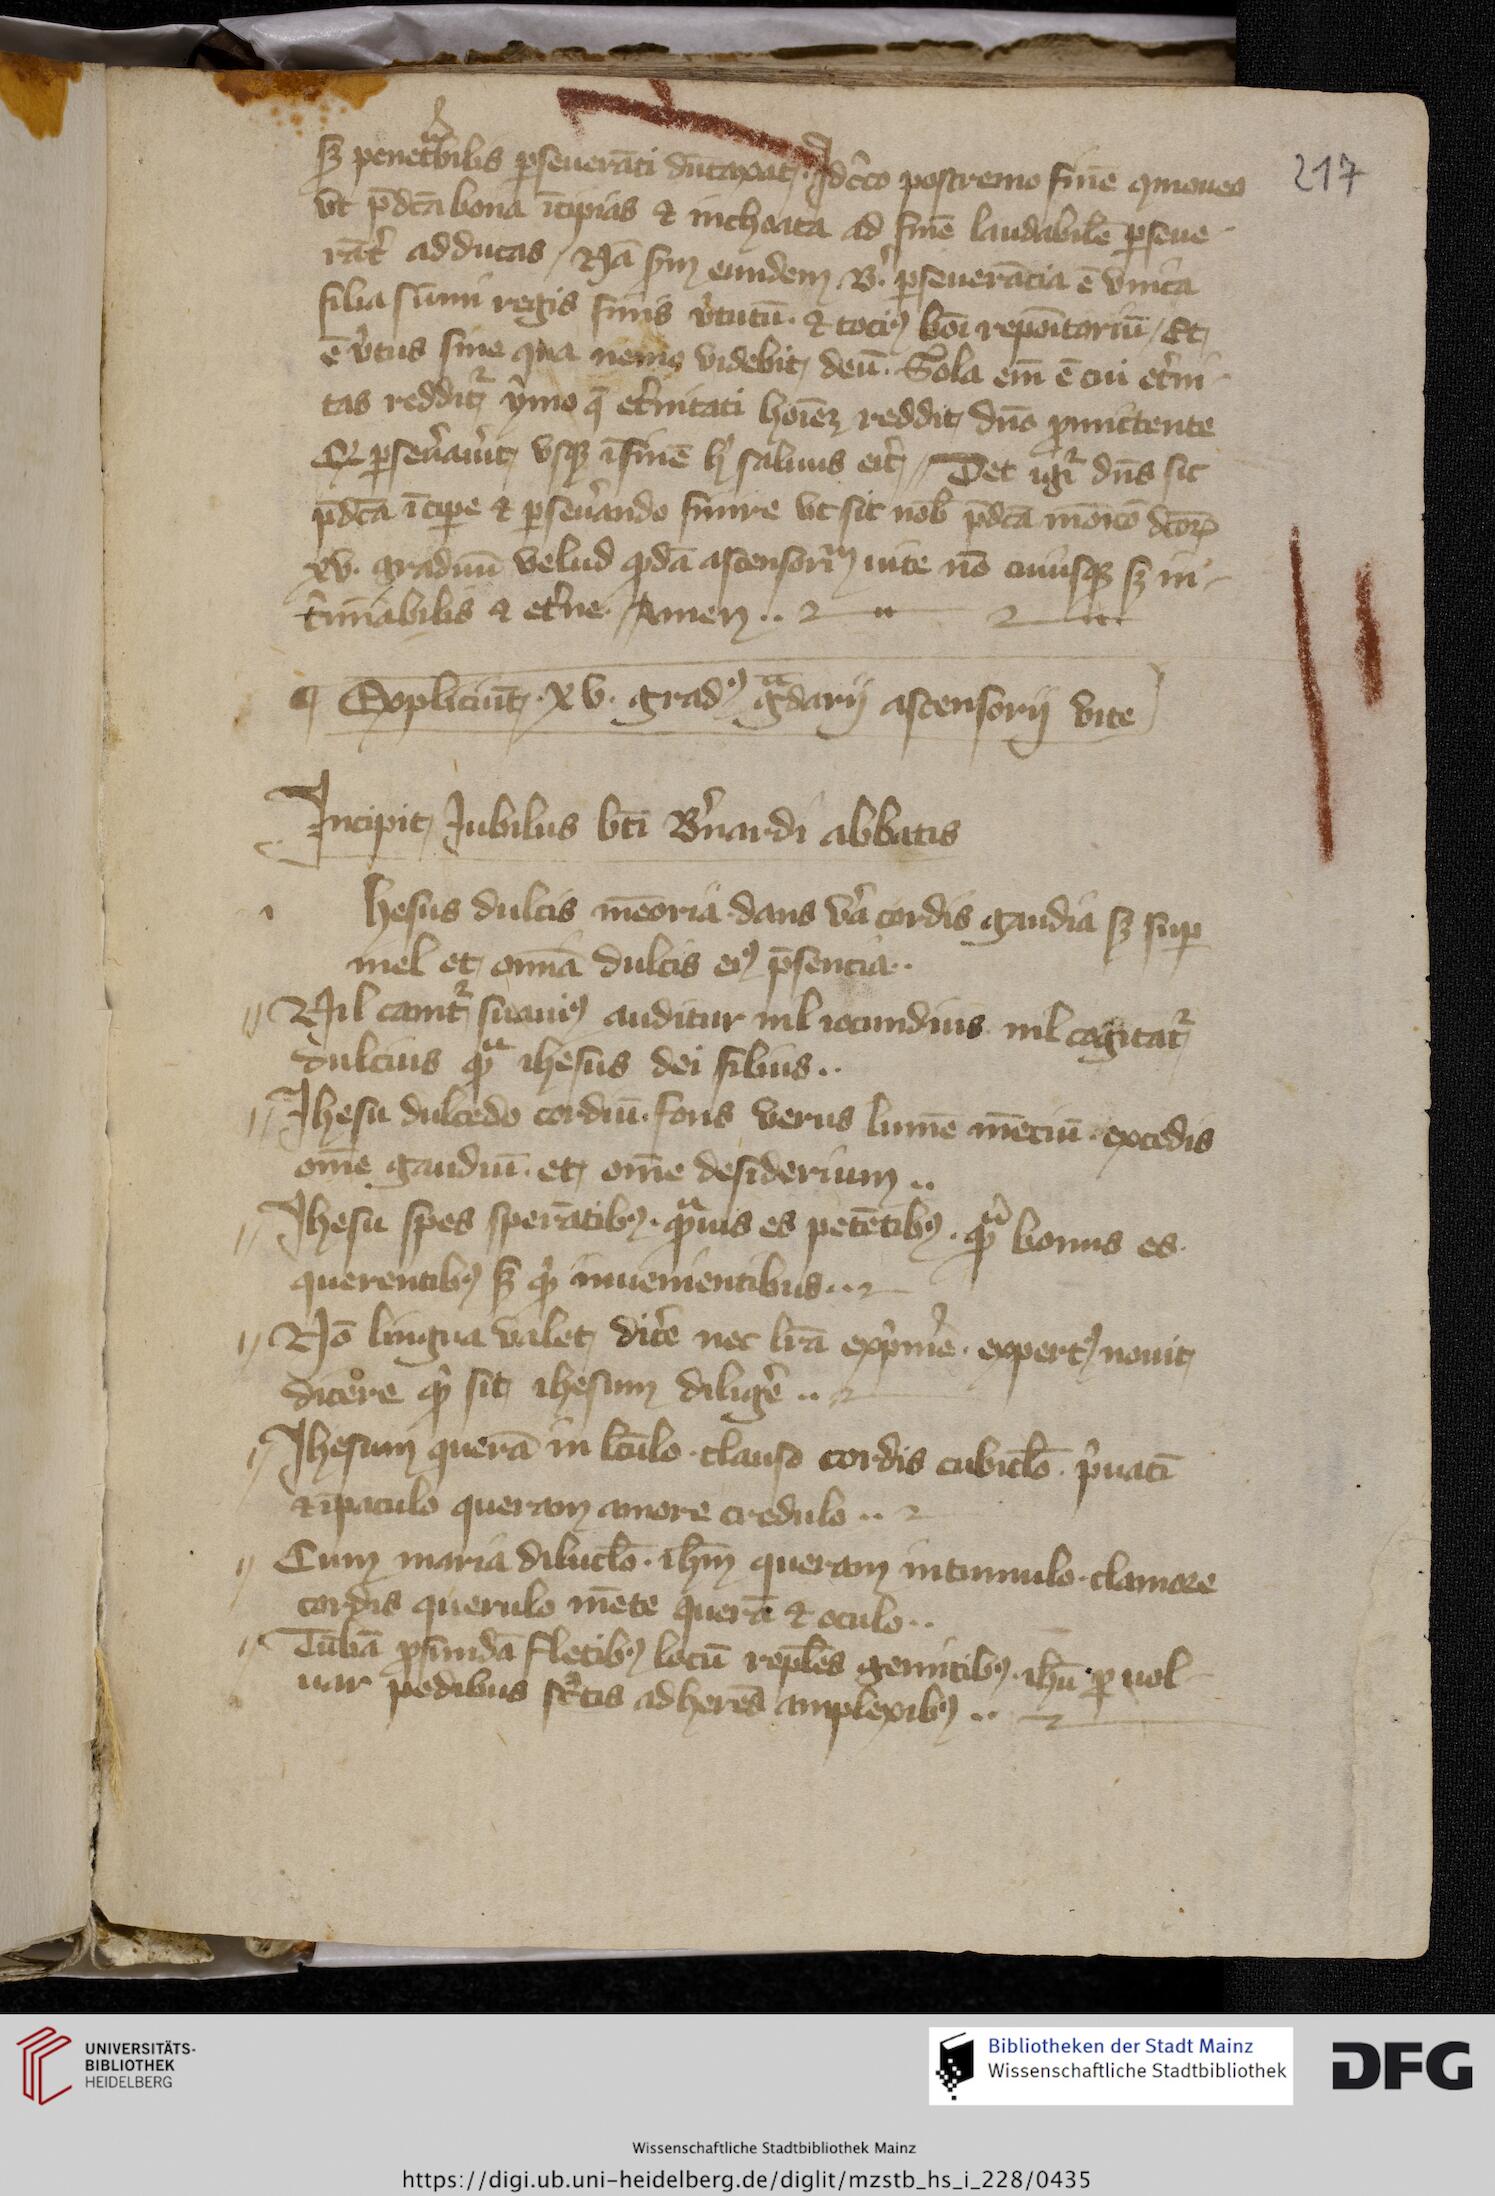 217
sꝫ penetͣbilis ꝑseuerāti dūtaxat. Idc̄co postremo finē ꝯmoueo
vt p̄dc̄a bona īcipias et inchoata ad finē laudabilē ꝑseue-
rāt̉ adducas / Nā ẜm eundem B. ꝑseuerācia ē vnica
filia sūmi regis finis v̉tutū. et tociꝰ boī repoītoriū / Et
ē v̉tus sine qua nemo videbit deū. Sola em̄ ē cui et̉ni-
tas reddit᷑ ymo q̄ et̉nitati hoīem reddit dn̄o ꝓmittente
Qͥ ꝑseủaủit vsqꝫ ī finē hͥ saluus erit // Det igͥ᷑ dn̄s sic
p̄dc̄a īcipe et ꝑseủando finire vt sit nob̄ p̄dc̄a dc̄oꝝ
xv. graduū velud qͦdā ascensoriū vite nō cuiusqꝫ sꝫ in-
t̉minabilis et et̉ne. Amen ..
Expliciūt .xv. gradꝰ gͣdarij ascensorij vite
Incipit Iubilus bt̄i B̉nardi abbatis
hesus dulcis mēoria dans v̉a cordis gaudia sꝫ suꝑ
mel et omīa dulcis eiꝰ p̄sencia..
// Nil canit᷑ suauiꝰ auditur nil iocundius nil cogitat᷑
dulcius qͣꝫ ihesus dei filius..
// Ihesu dulcedo cordiū. fons verus lumē mēciū. excedis
om̄e gaudiū. et om̄e desiderium..
// Ihesu spes sperātibꝰ. qͣꝫ pius es petētibꝰ. qͣꝫ bonus es.
querentibꝰ sꝫ qͥd inuenientibus..
// Nō lingua valet dic̉e nec lr̄a exp̉mē̉. expertꝰ nouit
dicere qͥd sit ihesum diligē̉..
// Ihesum querā in lc̄ulo. clauso cordis cubicl̄o. p̉uatī
et ī pͣculo queram amore credulo..
// Cum maria dilucl̄o. ihm̄ queram in tumulo. clamore
cordis querulo mēte querā et oculo..
// Tūbā ꝓfundā fletibꝰ locū replēs gemitibꝰ. ihū ꝑuol-
uar pedibus st̉ctis adherēs amplexibꝰ..
UNIVERSITÄTS-
BIBLIOTHEK
HEIDELBERG
Bibliotheken der Stadt Mainz
Wissenschaftliche Stadtbibliothek
DFG
Wissenschaftliche Stadtbibliothek Mainz
https://digi.ub.uni-heidelberg.de/diglit/mzstb_hs_i_228/0435